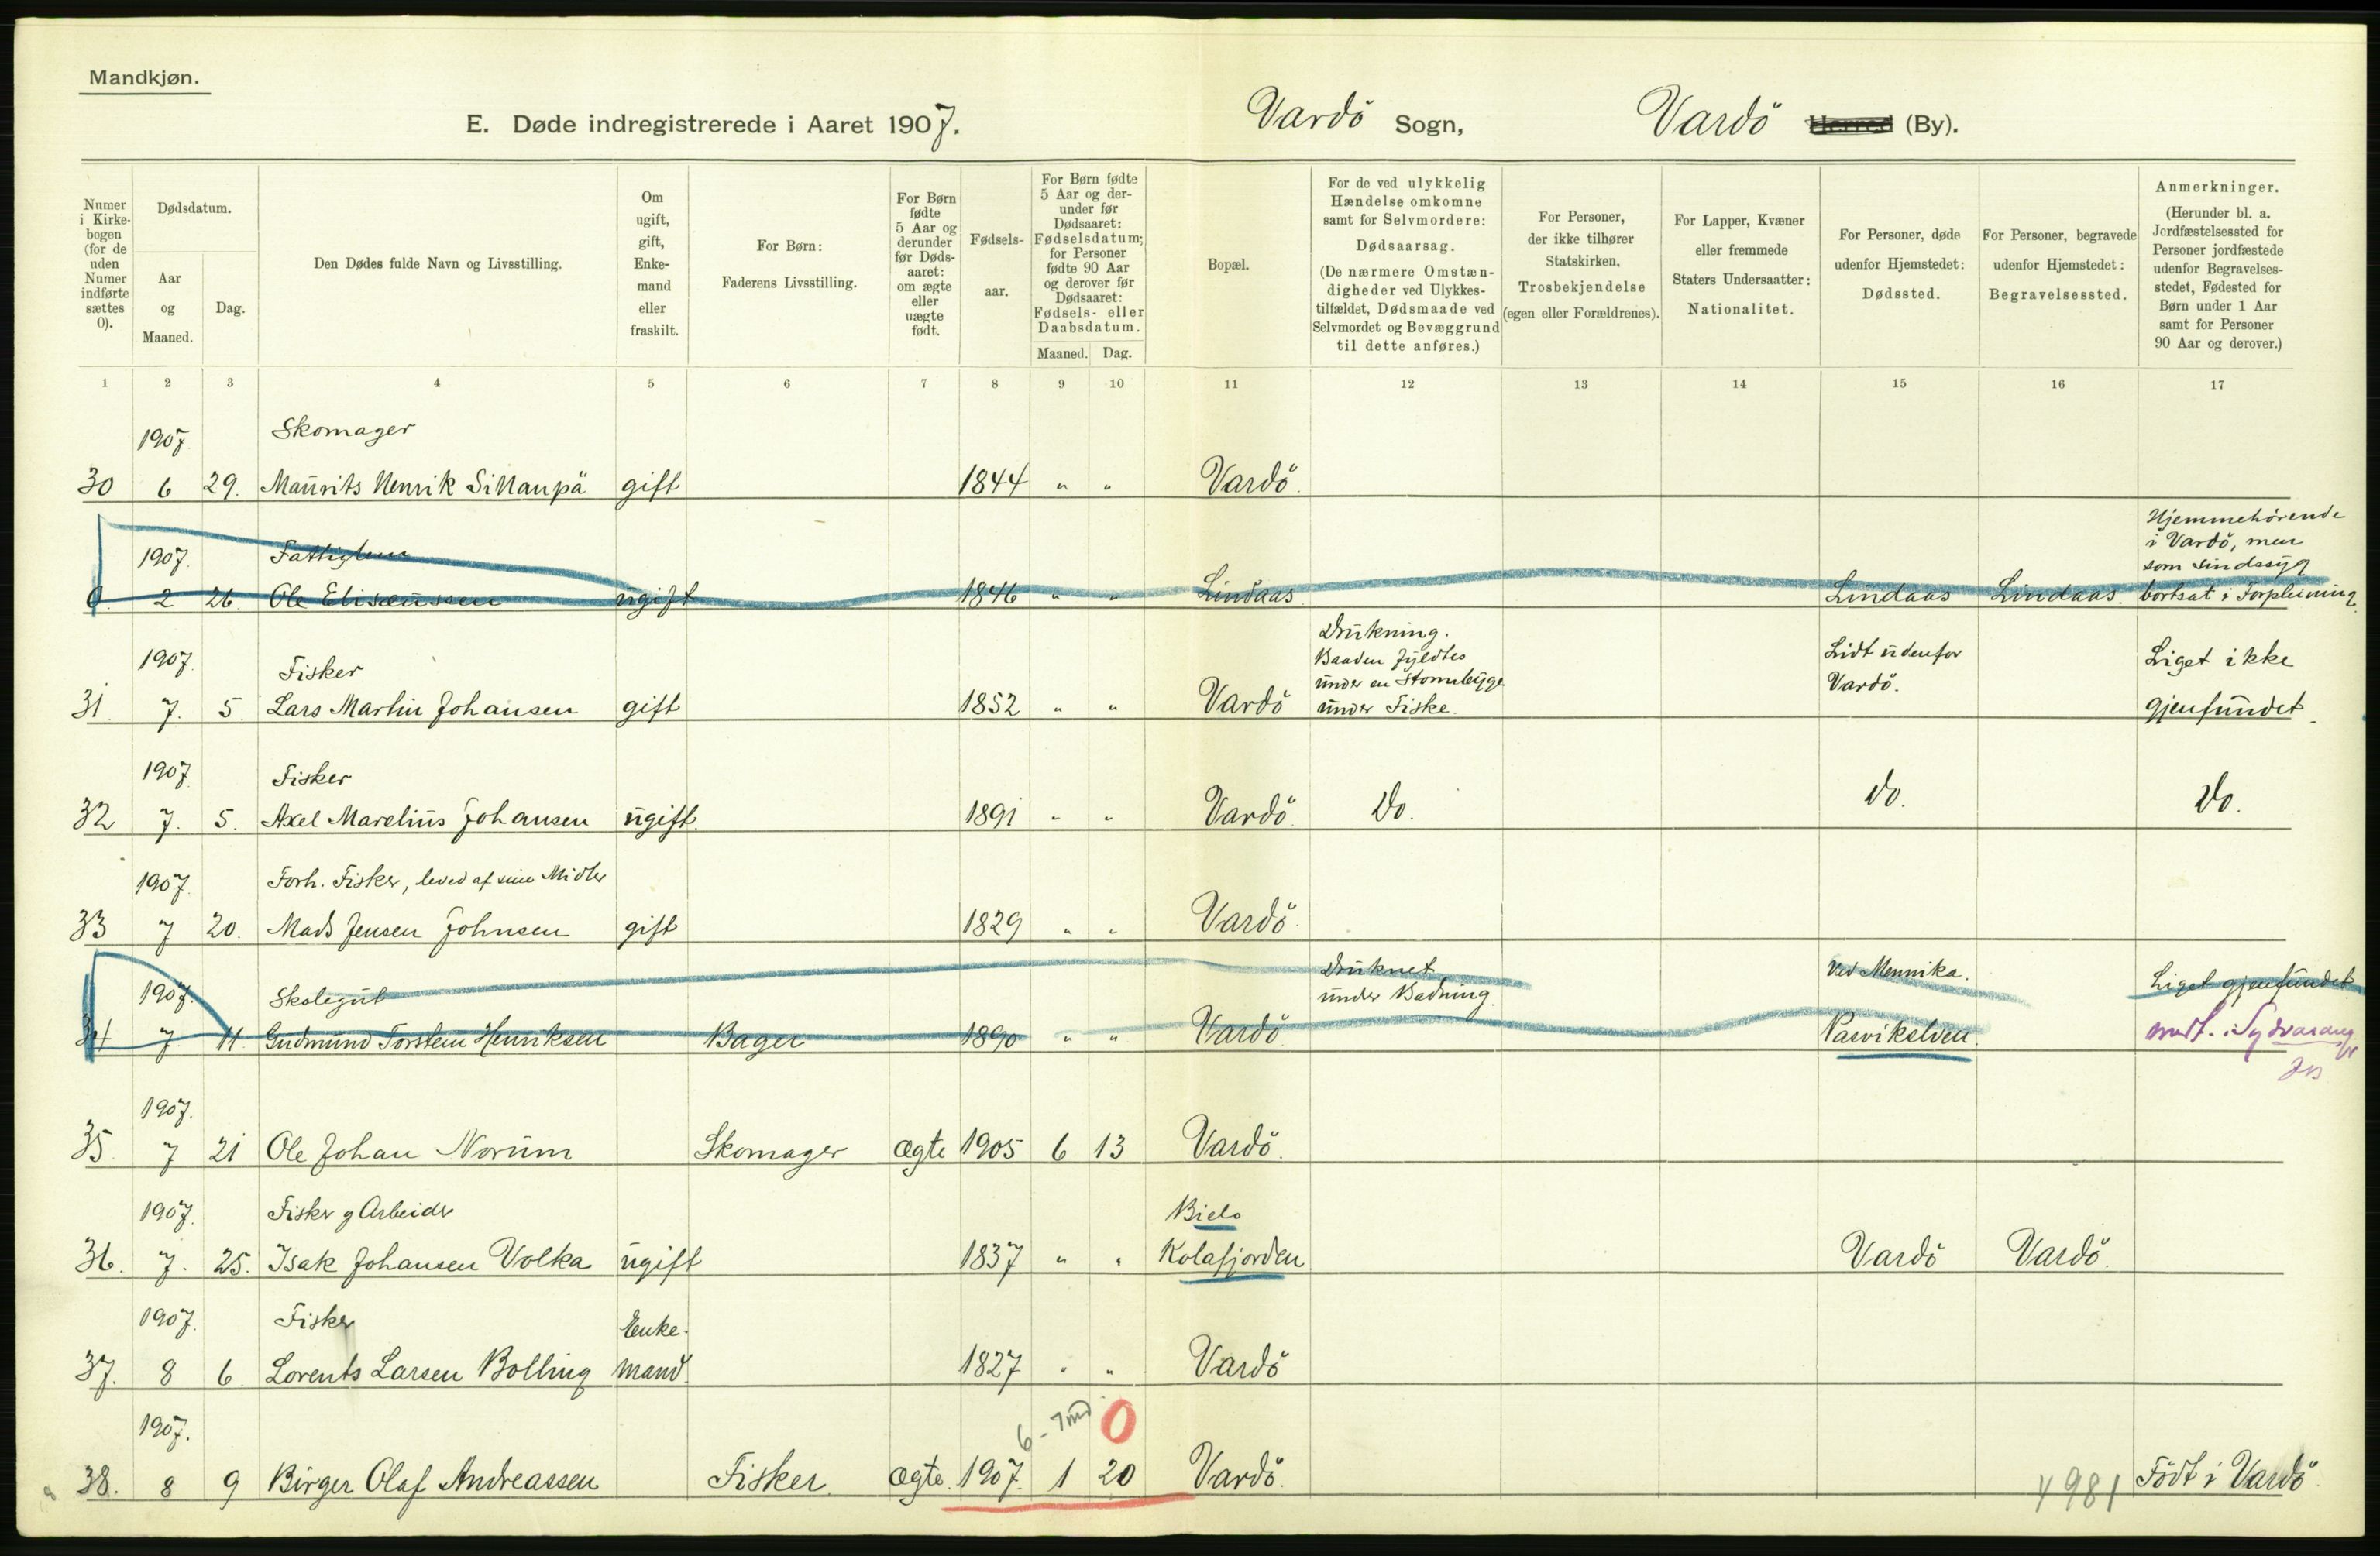 Mandkjøn.
E. Døde indregistrerede i Aaret 1907.
Vardö Sogn, Vardö Herred (By).
Numer i Kirkebogen (for de uden Numer indførte sættes 0).
Dødsdatum.
Aar og Maaned.
Dag.
Den Dødes fulde Navn og Livsstilling.
Om ugift, gift, Enkemand eller fraskilt.
For Børn: Faderens Livsstilling.
For Børn fødte 5 Aar og derunder før Dødsaaret: om ægte eller uægte født.
Fødselsaar.
For Børn fødte 5 Aar og derunder før Dødsaaret: Fødselsdatum; for Personer fødte 90 Aar og derover før Dødsaaret: Fødsels- eller Daabsdatum.
Maaned. Dag.
Bopæl.
For de ved ulykkelig Hændelse omkomne samt for Selvmordere: Dødsaarsag. (De nærmere Omstændigheder ved Ulykkestilfældet, Dødsmaade ved Selvmordet og Bevæggrund til dette anføres.)
For Personer, der ikke tilhører Statskirken, Trosbekjendelse (egen eller Forældrenes).
For Lapper, Kvæner eller fremmede Staters Undersaatter: Nationalitet.
For Personer, døde udenfor Hjemstedet: Dødssted.
For Personer, begravede udenfor Hjemstedet: Begravelsessted.
Anmerkninger. (Herunder bl. a. Jordfæstelsessted for Personer jordfæstede udenfor Begravelsesstedet, Fødested for Børn under 1 Aar samt for Personer 90 Aar og derover.)
1 2 3 4 5 6 7 8 9 10 11 12 13 14 15 16 17
1907. Skomager
30 6 29. Maurits Henrik Sillanpä gift 1844 " " Vardö.
Hjemmehörende
i Vardö, men
1907. Fattiglem som sindssyg
0. 2 26. Ole Elisæussen ugift 1846 " " Lindaas Lindaas Lindaas. bortsat i Forpleining.
Drukning.
1907. Fisker Baaden fyldtes Lidt udenfor Liget ikke
under en Stormbyge Vardö.
31. 7. 5. Lars Martin Johansen gift 1852 " " Vardö under Fiske. gjenfundet.
1907. Fisker
32 7. 5. Axel Marelius Johansen ugift. 1891 " " Vardö. Do. Do. Do.
1907. Forh. Fisker, leved af sine Midler
33 7 20. Mads Jensen Johnsen gift 1829 " " Vardö.
Druknet Ved Mennika. Liget gjenfundet
1907. Skolegut under Badning.
34 7 11. Gudmund Torstein Henriksen Bager 1890 " " Vardö Pasvikelven. medt. i Sydvaranger
1907.
35. 7 21 Ole Johan Norum Skomager ægte 1905 6 13 Vardö.
1907. Fisker og Arbeider Bielo
36. 7. 25. Isak Johansen Volka ugift 1837 " " Kolafjorden. Vardö Vardö.
1907. Fisker Enke-
37. 8 6 Lorents Larsen Bolling mand. 1827 " " Vardö
1907. 6-7 md 0
38. 8 9 Birger Olaf Andreassen Fisker ægte. 1907. 1 20 Vardö. 4981 Födt i Vardö.